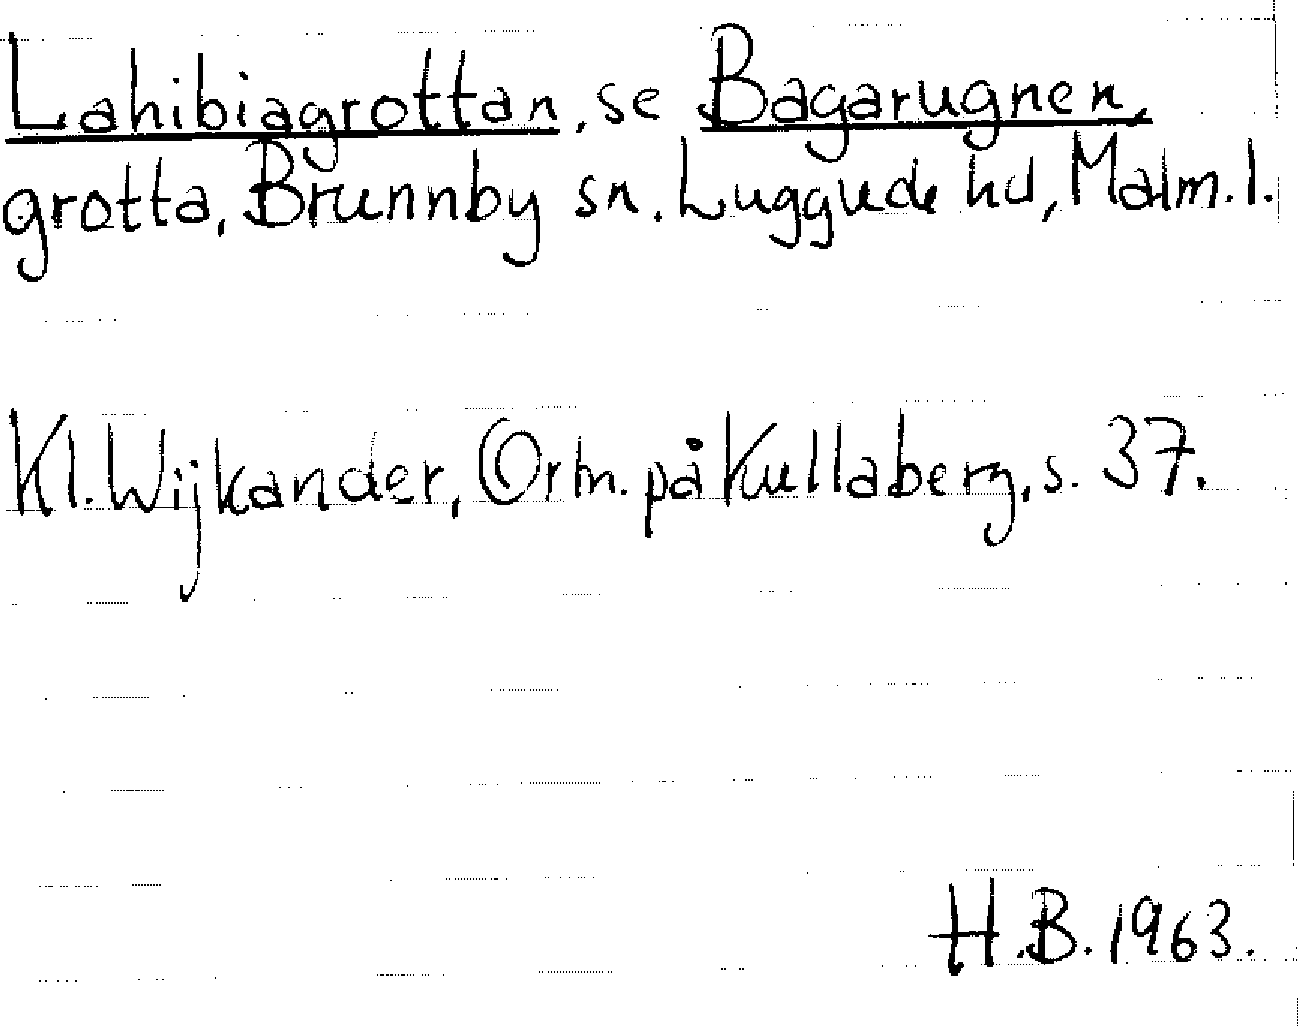 Lahibiagrottan, se Bagarugnen,
grotta, Brunnby sn. Luggude hd, Malm. l.
Kl. Wijkander, Ortn. på Kullaberg, s. 37.
H.B. 1963.